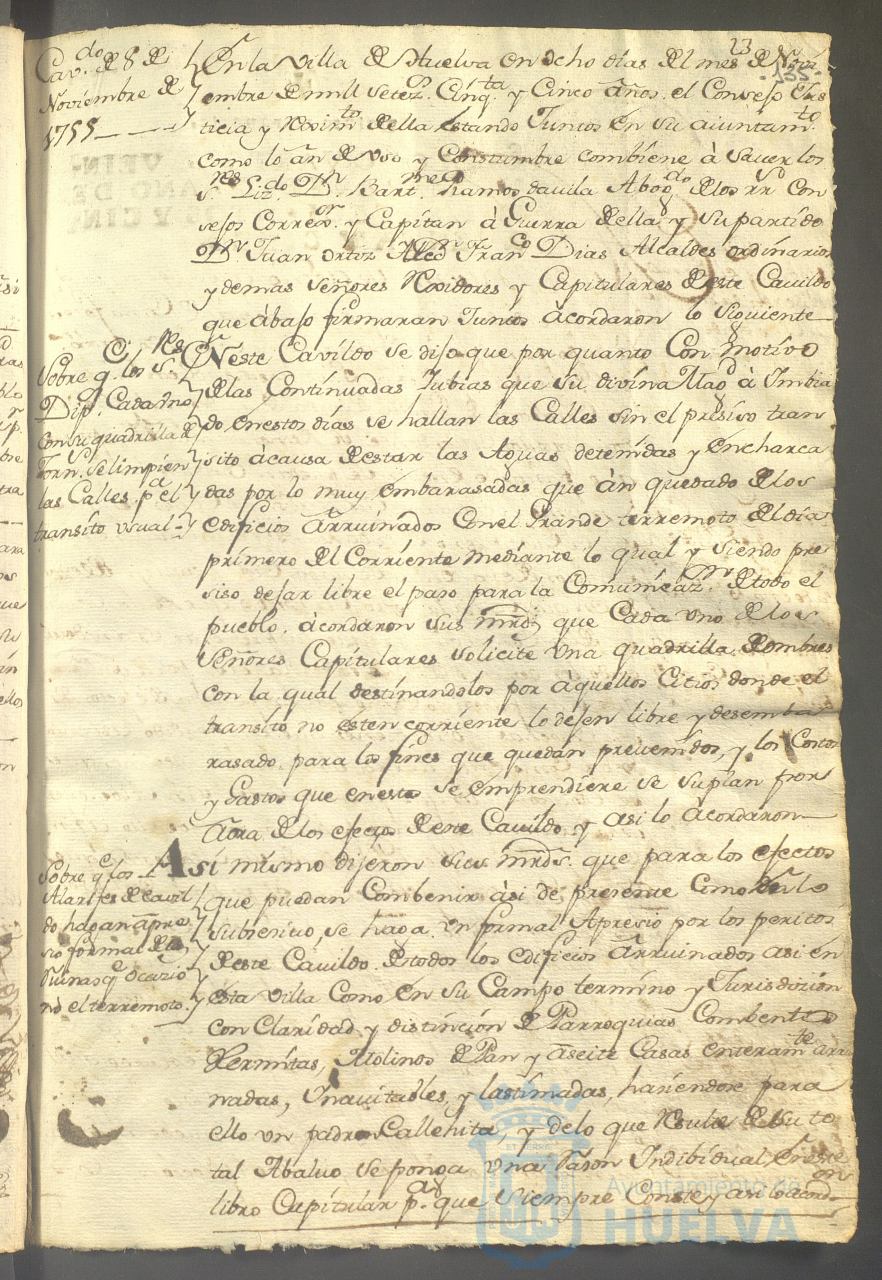 23
155
Cav.do de 8 de
Noviembre de
1755
En la villa de Huelva en ocho dias del mes de Novi
embre de mill setez.s Cinq.ta y Cinco años. el Consejo Jus
ticia y Reximto. della estando Juntos en su aiuntamto.
como lo an de uso y Constumbre combiene à saver los
s.res Liz.do D.n Bart.me Ramos davila Abog.do de los rs Con
sejos Correx.or y Capitan à Guerra della y su partido
D.n Juan Ortiz Fran.co Dias Alcaldes ordinarios
y demas señores Rexidores y Capitulares deste Cavildo
que àbajo firmaran Juntos àcordaron lo siguiente
Sobre q.e los s.res
Dip. Cada Uno
con su quadrilla de
Torn.s se limpien
las Calles p.a el
transito usual
En este Cavildo se dijo que por quanto Con motivo
de las Continuadas Lubias que su divina Magd à Imbia
do en estos dias se hallan las Calles sin el presiso tran
sito àcausa de estar las Aguas detenidas y encharca
das por lo muy embarasadas que àn quedado de los
edificios arruinados con el Grande terremoto del dia
primero del Corriente mediante lo qual y siendo pre
siso dejar libre el paso para la Comunicaz.on de todo el
pueblo. àcordaron sus mrds que Cada uno de los
Señores Capitulares solicite una quadrilla de ombres
con la qual destinandolos por àquellos Citios donde el
transito no esten corriente lo dejen libre y desemba
rasado para los fines que quedan prevenidos, y los Costos
y Gastos que en esto se emprendiere se suplan por
aora de los efectos de este Cavildo y asi lo àcordaron
Sobre q.e los
Alarifes de cavil
do hagan apre
sio formal de las
Ruinas q.e ocasio
nó el terremoto.
Asi mismo dijeron sus mrds. que para los efectos
que puedan Combenir àsi de presente Como en lo
subsesivo se haga un formal Apresio por los peritos
deste Cavildo de todos los edificios arruinados asi en
esta villa Como en su Campo termino y Jurisdizion
con Claridad y distincion de Parroquias Combentos
Hermitas, Molinos de Pan y aseite Casas enteramte. arru
inadas, Inavitables, y lastimadas, hasiendose para
ello un padron Callehita, y de lo que Resulte de su to
tal Abaluo se ponga una Rason Indibidual en este
libro Capitular p.a que siempre Conste y asi lo acord.on
Ayuntamiento de
HUELVA